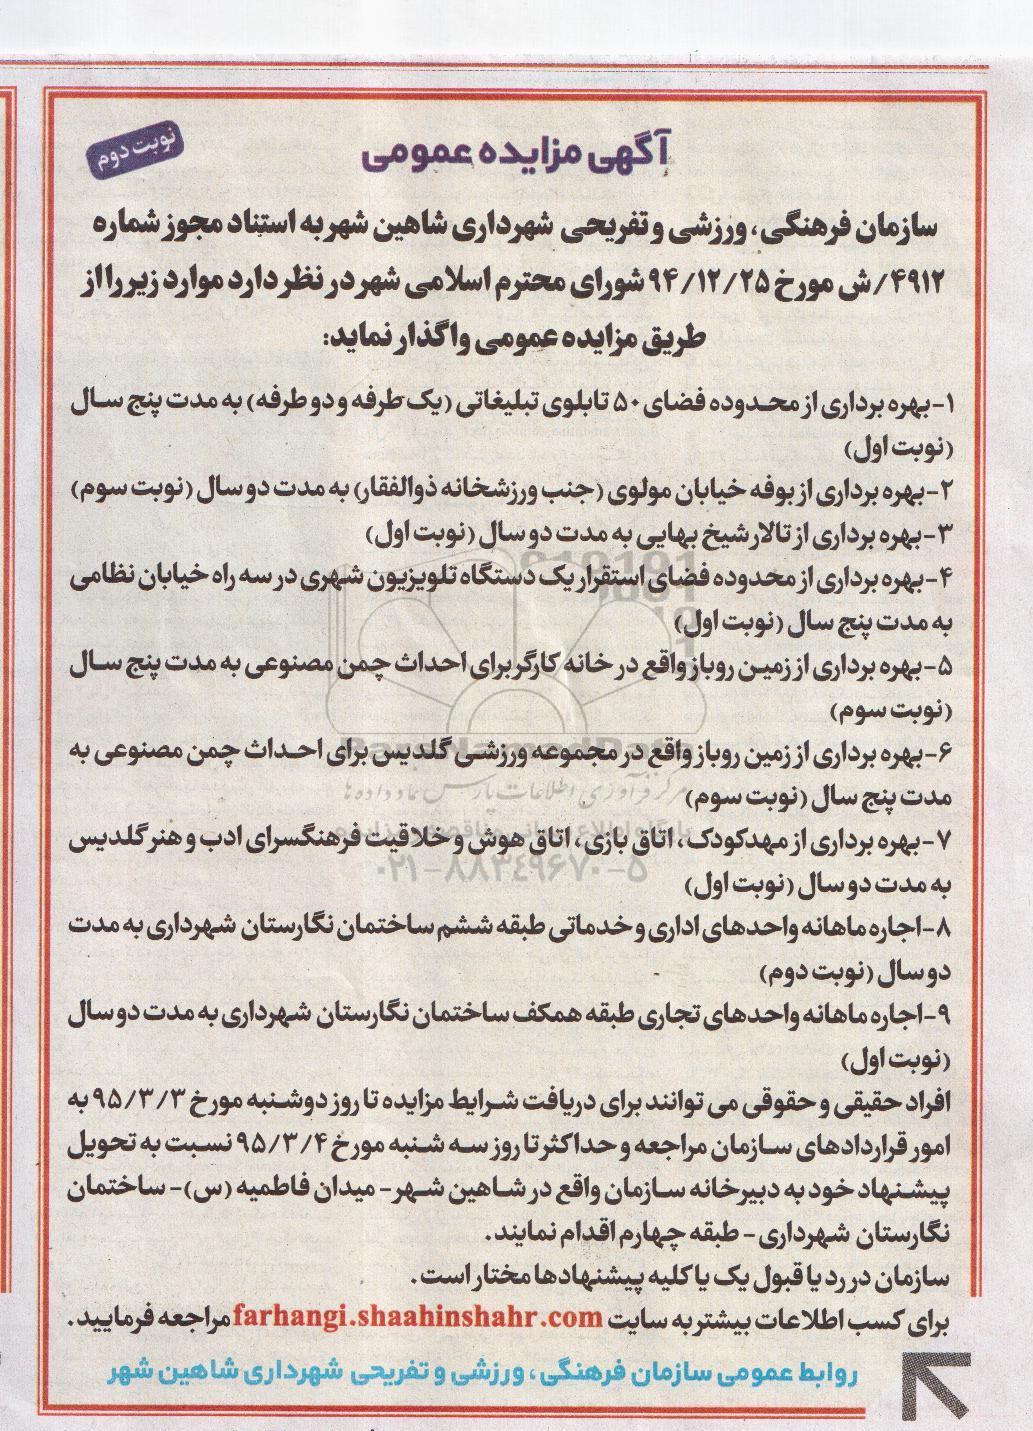 آگهی مزایده عمومی
نوبت دوم
سازمان فرهنگی، ورزشی و تفریحی شهرداری شاهین شهر به استناد مجوز شماره
۴۹۱۲/ش مورخ ۹۴/۱۲/۲۵ شورای محترم اسلامی شهر در نظر دارد موارد زیر را از
طریق مزایده عمومی واگذار نماید:
۱-بهره برداری از محدوده فضای ۵۰ تابلوی تبلیغاتی (یک طرفه و دو طرفه) به مدت پنج سال
(نوبت اول)
۲-بهره برداری از بوفه خیابان مولوی (جنب ورزشخانه ذوالفقار) به مدت دو سال (نوبت سوم)
۳-بهره برداری از تالار شیخ بهایی به مدت دو سال (نوبت اول)
۴-بهره برداری از محدوده فضای استقرار یک دستگاه تلویزیون شهری در سه راه خیابان نظامی
به مدت پنج سال (نوبت اول)
۵-بهره برداری از زمین روباز واقع در خانه کارگر برای احداث چمن مصنوعی به مدت پنج سال
(نوبت سوم)
۶-بهره برداری از زمین روباز واقع در مجموعه ورزشی گلدیس برای احداث چمن مصنوعی به
مدت پنج سال (نوبت سوم)
مرکز فرآوری اطلاعات پارس نماد داده ها
۷-بهره برداری از مهدکودک، اتاق بازی، اتاق هوش و خلاقیت فرهنگسرای ادب و هنر گلدیس
به مدت دو سال (نوبت اول)
۰۲۱-۸۸۳۴۹۶۷۰-۵
۸-اجاره ماهانه واحدهای اداری و خدماتی طبقه ششم ساختمان نگارستان شهرداری به مدت
دو سال (نوبت دوم)
۹-اجاره ماهانه واحدهای تجاری طبقه همکف ساختمان نگارستان شهرداری به مدت دو سال
(نوبت اول)
افراد حقیقی و حقوقی می توانند برای دریافت شرایط مزایده تا روز دوشنبه مورخ ۹۵/۳/۳ به
امور قراردادهای سازمان مراجعه و حداکثر تا روز سه شنبه مورخ ۹۵/۳/۴ نسبت به تحویل
پیشنهاد خود به دبیرخانه سازمان واقع در شاهین شهر- میدان فاطمیه (س)- ساختمان
نگارستان شهرداری - طبقه چهارم اقدام نمایند.
سازمان در رد یا قبول یک یا کلیه پیشنهادها مختار است.
برای کسب اطلاعات بیشتر به سایت farhangi.shaahinshahr.com مراجعه فرمایید.
روابط عمومی سازمان فرهنگی، ورزشی و تفریحی شهرداری شاهین شهر